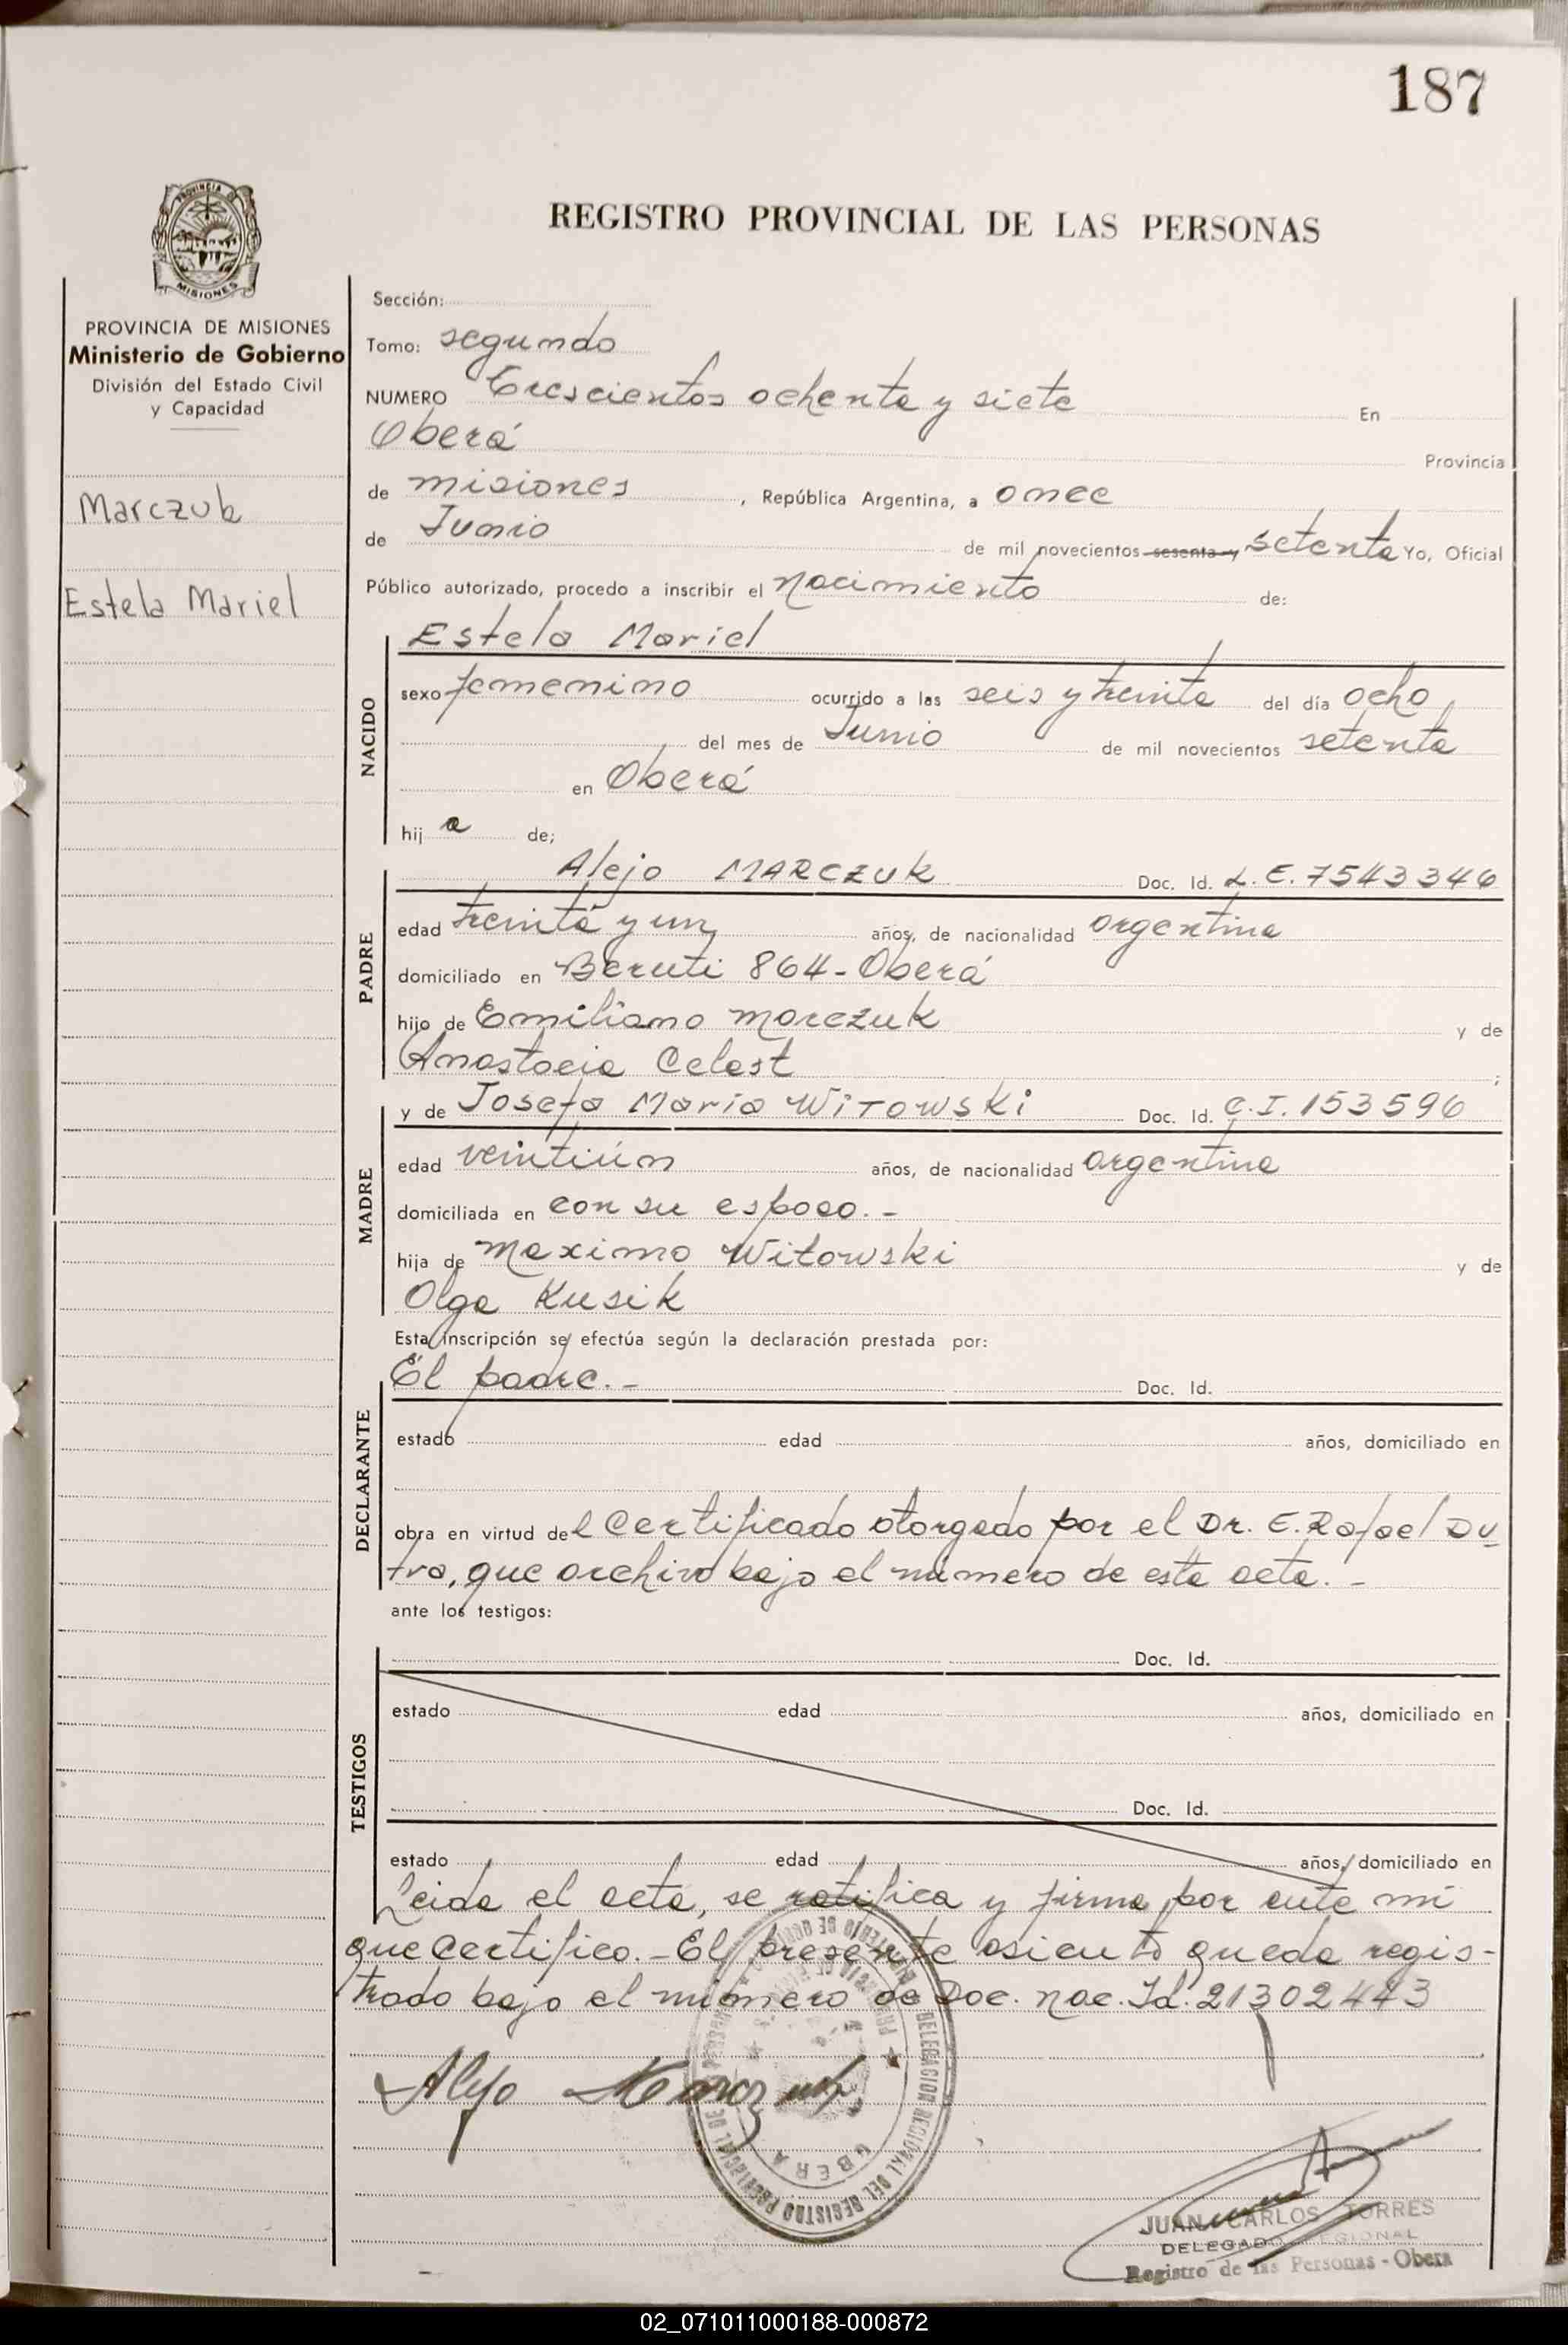 187
REGISTRO PROVINCIAL DE LAS PERSONAS
PROVINCIA DE MISIONES
Ministerio de Gobierno
División del Estado Civil
y Capacidad
Marczuk
Estela Mariel
Sección:
Tomo: segundo
NUMERO Trescientos ochenta y siete En
Oberá Provincia
de misiones, República Argentina, a once
de Junio de mil novecientos sesenta y setenta Yo, Oficial
Público autorizado, procedo a inscribir el nacimiento de:
NACIDO
Estela Mariel
sexo femenino ocurrido a las seis y treinta del día ocho
del mes de Junio de mil novecientos setenta
en Oberá
hij a de;
PADRE
Alejo MARCZUK Doc. Id. L.E. 7543346
edad treinta y un años, de nacionalidad argentina
domiciliado en Beruti 864-Oberá
hijo de Emiliano Marczuk y de
Anastacia Celest;
MADRE
y de Josefa Maria WITOWSKi Doc. Id. C.I. 153596
edad veintiún años, de nacionalidad argentina
domiciliada en con su esposo.-
hija de Maximo Witowski y de
Olga Kusik
Esta inscripción se efectúa según la declaración prestada por:
DECLARANTE
El padre.- Doc. Id.
estado edad años, domiciliado en
obra en virtud del Certificado otorgado por el Dr. E. Rafael Du
tra, que archivo bajo el número de esta acta.-
ante los testigos:
TESTIGOS
Doc. Id.
estado edad años, domiciliado en
Doc. Id.
estado edad años, domiciliado en
Leida el acta, se ratifica y firma por ante mi
que certifico.- El presente asiento queda regis-
trado bajo el número de Doc. nac. Id. 21302443
Alejo Marczuk
DELEGACION REGIONAL DEL REGISTRO PROVINCIAL DE
OBERA
JUAN CARLOS TORRES
DELEGADO REGIONAL
Registro de las Personas - Obera
02_071011000188-000872